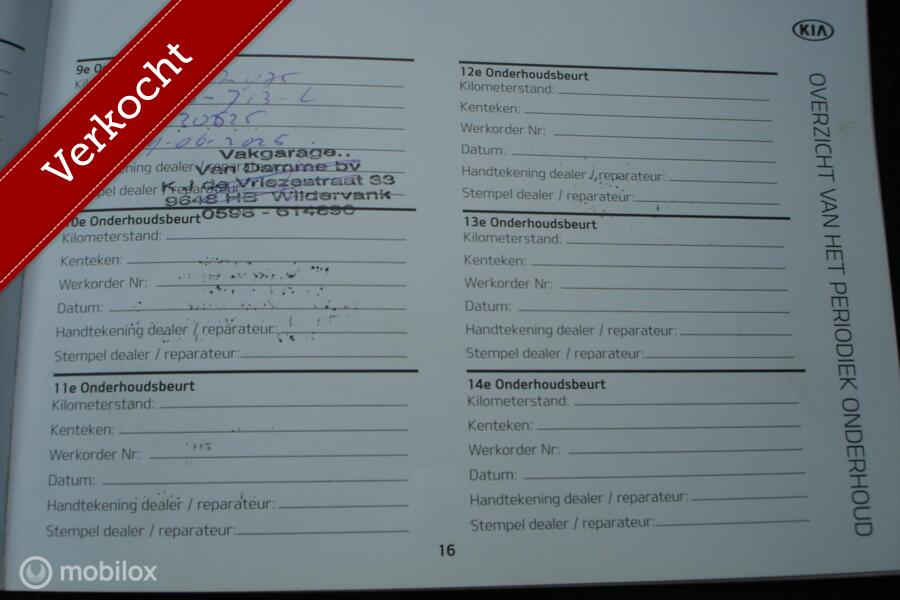 Verkocht
9e
-713-L
20625
-06-2025
Vakgarage..
Van Damme bv
K.J de Vriezestraat 33
9648 HB Wildervank
0598 - 614690
ening dealer / reparateur:
pel dealer / reparateur:
10e Onderhoudsbeurt
Kilometerstand:
Kenteken:
Werkorder Nr:
Datum:
Handtekening dealer / reparateur:
Stempel dealer / reparateur:
11e Onderhoudsbeurt
Kilometerstand:
Kenteken:
Werkorder Nr:
Datum:
Handtekening dealer / reparateur:
Stempel dealer / reparateur:
12e Onderhoudsbeurt
Kilometerstand:
Kenteken:
Werkorder Nr:
Datum:
Handtekening dealer / reparateur:
Stempel dealer / reparateur:
13e Onderhoudsbeurt
Kilometerstand:
Kenteken:
Werkorder Nr:
Datum:
Handtekening dealer / reparateur:
Stempel dealer / reparateur:
14e Onderhoudsbeurt
Kilometerstand:
Kenteken:
Werkorder Nr:
Datum:
Handtekening dealer / reparateur:
Stempel dealer / reparateur:
KIA
OVERZICHT VAN HET PERIODIEK ONDERHOUD
16
mobilox